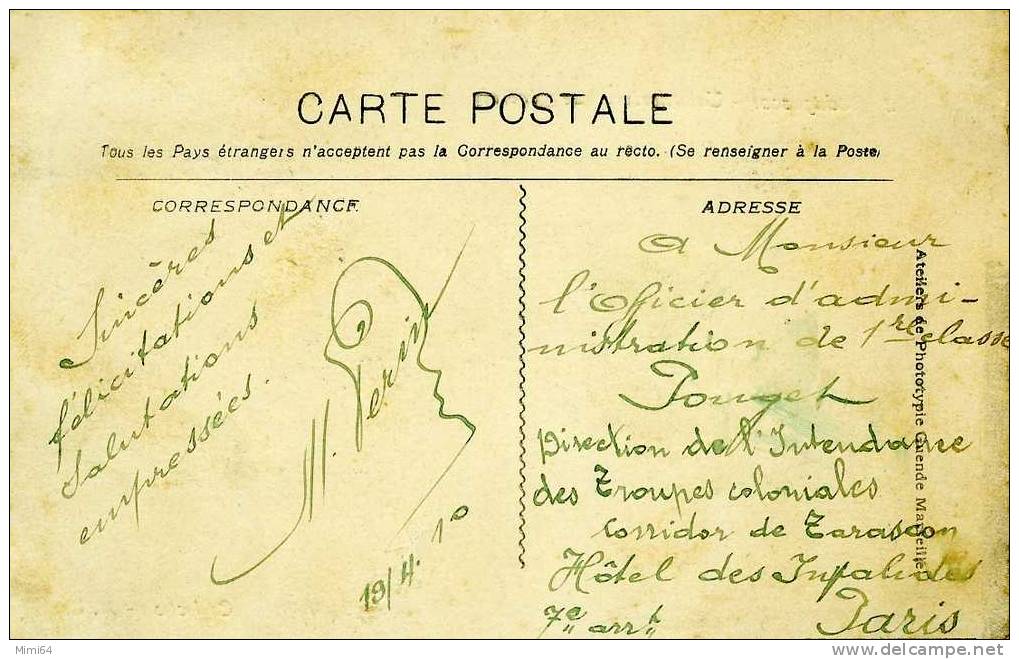 CARTE POSTALE
Tous les Pays étrangers n'acceptent pas la Correspondance au recto. (Se renseigner à la Poste)
CORRESPONDANCE
Sincères
félicitations et
salutations
empressées.
M. Perrin
19/4. 10
ADRESSE
A Monsieur
l'Oficier d'admi-
nistration de 1re classe
Pouget
Direction de l'Intendance
des Troupes coloniales
corridor de Tarascon
Hôtel des Invalides
7e arrt Paris
Ateliers de Phototypie Guende Marseille
Mimi64
www.delcampe.net